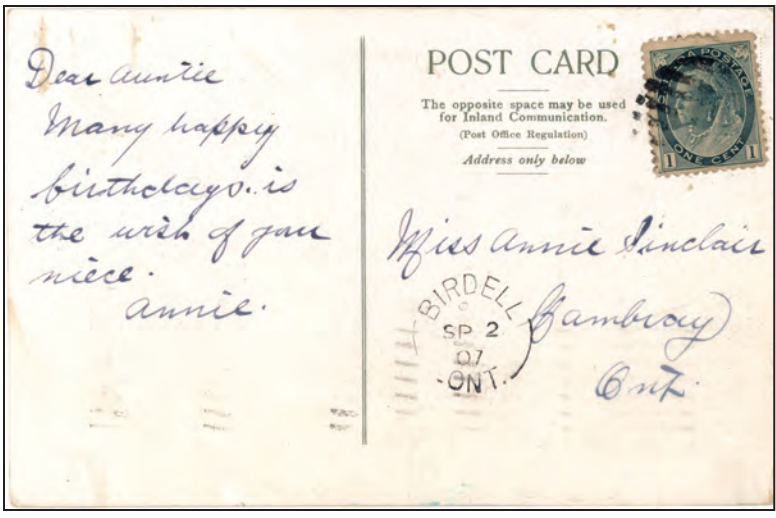 Dear Auntie
Many happy
birthdays. is
the wish of your
niece.
Annie.
POST CARD
The opposite space may be used
for Inland Communication.
(Post Office Regulation)
Address only below
CANADA POSTAGE
1 ONE CENT 1
Miss Annie Sinclair
Cambray
Ont.
BIRDELL
SP 2
07
ONT.